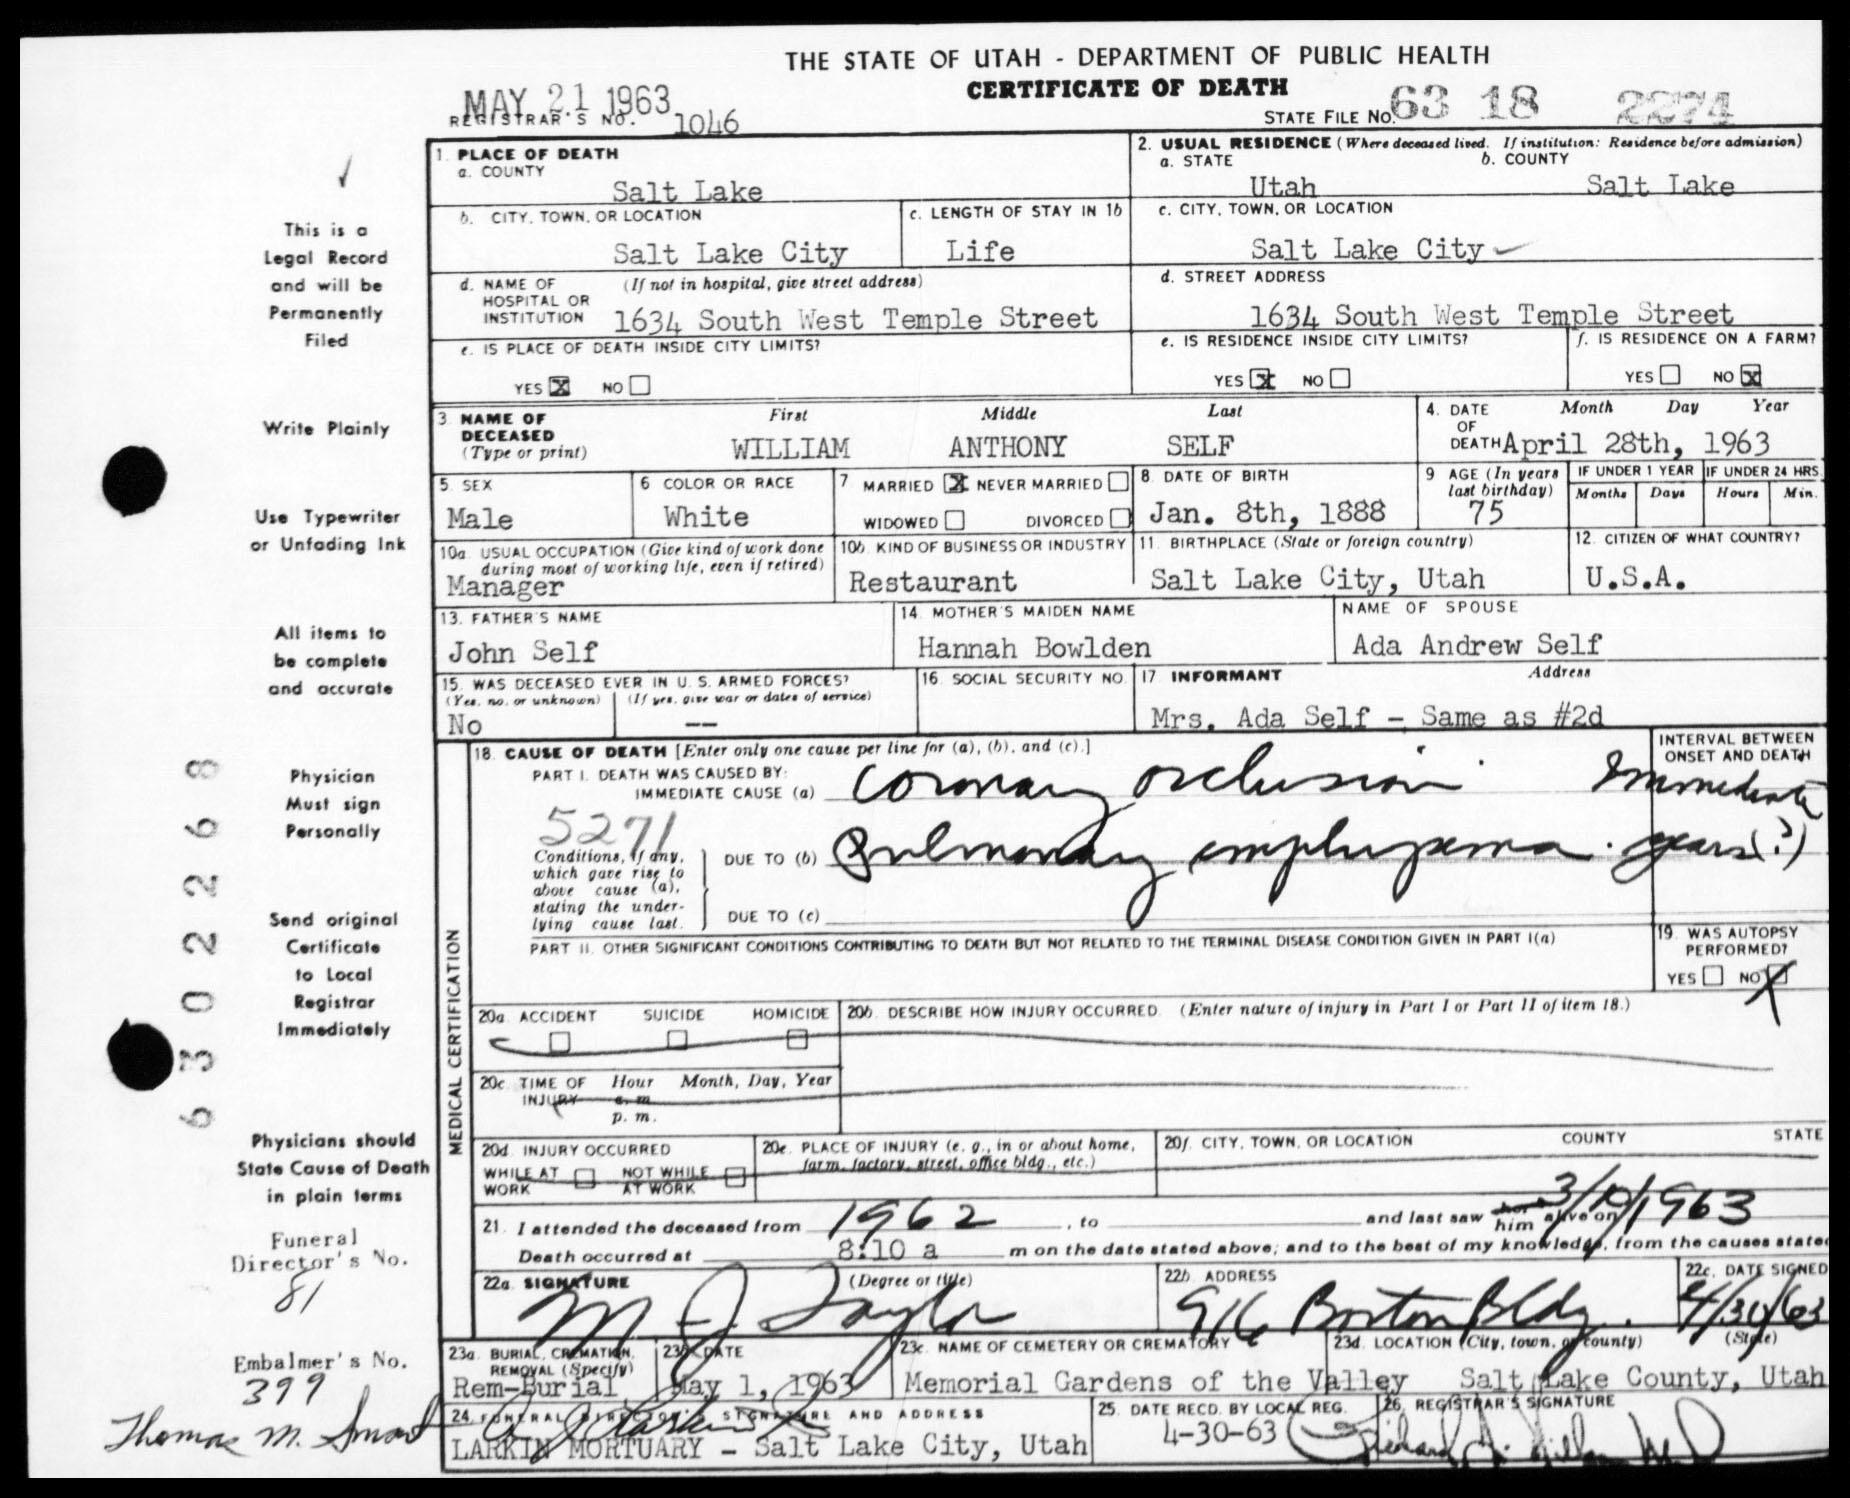 THE STATE OF UTAH - DEPARTMENT OF PUBLIC HEALTH
CERTIFICATE OF DEATH
MAY 21 1963
REGISTRAR'S NO. 1046
STATE FILE NO. 63 18 2274
1. PLACE OF DEATH
a. COUNTY
Salt Lake
2. USUAL RESIDENCE (Where deceased lived. If institution: Residence before admission)
a. STATE b. COUNTY
Utah Salt Lake
b. CITY, TOWN, OR LOCATION
Salt Lake City
c. LENGTH OF STAY IN 1b
Life
c. CITY, TOWN, OR LOCATION
Salt Lake City
d. NAME OF HOSPITAL OR INSTITUTION (If not in hospital, give street address)
1634 South West Temple Street
d. STREET ADDRESS
1634 South West Temple Street
e. IS PLACE OF DEATH INSIDE CITY LIMITS?
YES X NO
e. IS RESIDENCE INSIDE CITY LIMITS?
YES X NO
f. IS RESIDENCE ON A FARM?
YES NO X
3. NAME OF DECEASED (Type or print)
First Middle Last
WILLIAM ANTHONY SELF
4. DATE OF DEATH Month Day Year
April 28th, 1963
5. SEX
Male
6 COLOR OR RACE
White
7 MARRIED X NEVER MARRIED
WIDOWED DIVORCED
8. DATE OF BIRTH
Jan. 8th, 1888
9 AGE (In years last birthday)
75
IF UNDER 1 YEAR
Months Days
IF UNDER 24 HRS.
Hours Min.
10a. USUAL OCCUPATION (Give kind of work done during most of working life, even if retired)
Manager
10b. KIND OF BUSINESS OR INDUSTRY
Restaurant
11. BIRTHPLACE (State or foreign country)
Salt Lake City, Utah
12. CITIZEN OF WHAT COUNTRY?
U.S.A.
13. FATHER'S NAME
John Self
14. MOTHER'S MAIDEN NAME
Hannah Bowlden
NAME OF SPOUSE
Ada Andrew Self
15. WAS DECEASED EVER IN U. S. ARMED FORCES?
(Yes, no. or unknown) (If yes, give war or dates of service)
No --
16. SOCIAL SECURITY NO.
17. INFORMANT Address
Mrs. Ada Self - Same as #2d
MEDICAL CERTIFICATION
18. CAUSE OF DEATH [Enter only one cause per line for (a), (b), and (c).]
INTERVAL BETWEEN ONSET AND DEATH
PART I. DEATH WAS CAUSED BY:
IMMEDIATE CAUSE (a) Coronary occlusion Immediate
5271
Conditions, if any, which gave rise to above cause (a), stating the under-lying cause last.
DUE TO (b) Pulmonary emphysema. years (?)
DUE TO (c)
PART II. OTHER SIGNIFICANT CONDITIONS CONTRIBUTING TO DEATH BUT NOT RELATED TO THE TERMINAL DISEASE CONDITION GIVEN IN PART I(a)
19. WAS AUTOPSY PERFORMED?
YES NO X
20a. ACCIDENT SUICIDE HOMICIDE
20b. DESCRIBE HOW INJURY OCCURRED. (Enter nature of injury in Part I or Part II of item 18.)
20c. TIME OF INJURY Hour Month, Day, Year
a. m.
p. m.
20d. INJURY OCCURRED
WHILE AT WORK NOT WHILE AT WORK
20e. PLACE OF INJURY (e. g., in or about home, farm, factory, street, office bldg., etc.)
20f. CITY, TOWN, OR LOCATION COUNTY STATE
21. I attended the deceased from 1962, to and last saw her him alive on 3/10/1963
Death occurred at 8:10 a m on the date stated above; and to the best of my knowledge, from the causes stated
22a. SIGNATURE (Degree or title)
M J Taylor
22b. ADDRESS
916 Boston Bldg.
22c. DATE SIGNED
4/30/63
23a. BURIAL, CREMATION, REMOVAL (Specify)
Rem-Burial
23b. DATE
May 1, 1963
23c. NAME OF CEMETERY OR CREMATORY
Memorial Gardens of the Valley
23d. LOCATION (City, town, or county) (State)
Salt Lake County, Utah
24. FUNERAL DIRECTOR'S SIGNATURE AND ADDRESS
LARKIN MORTUARY - Salt Lake City, Utah
25. DATE RECD. BY LOCAL REG.
4-30-63
26. REGISTRAR'S SIGNATURE
This is a
Legal Record
and will be
Permanently
Filed
Write Plainly
Use Typewriter
or Unfading Ink
All items to
be complete
and accurate
Physician
Must sign
Personally
Send original
Certificate
to Local
Registrar
Immediately
Physicians should
State Cause of Death
in plain terms
Funeral
Director's No.
81
Embalmer's No.
399
Thomas M. Smart
63022268